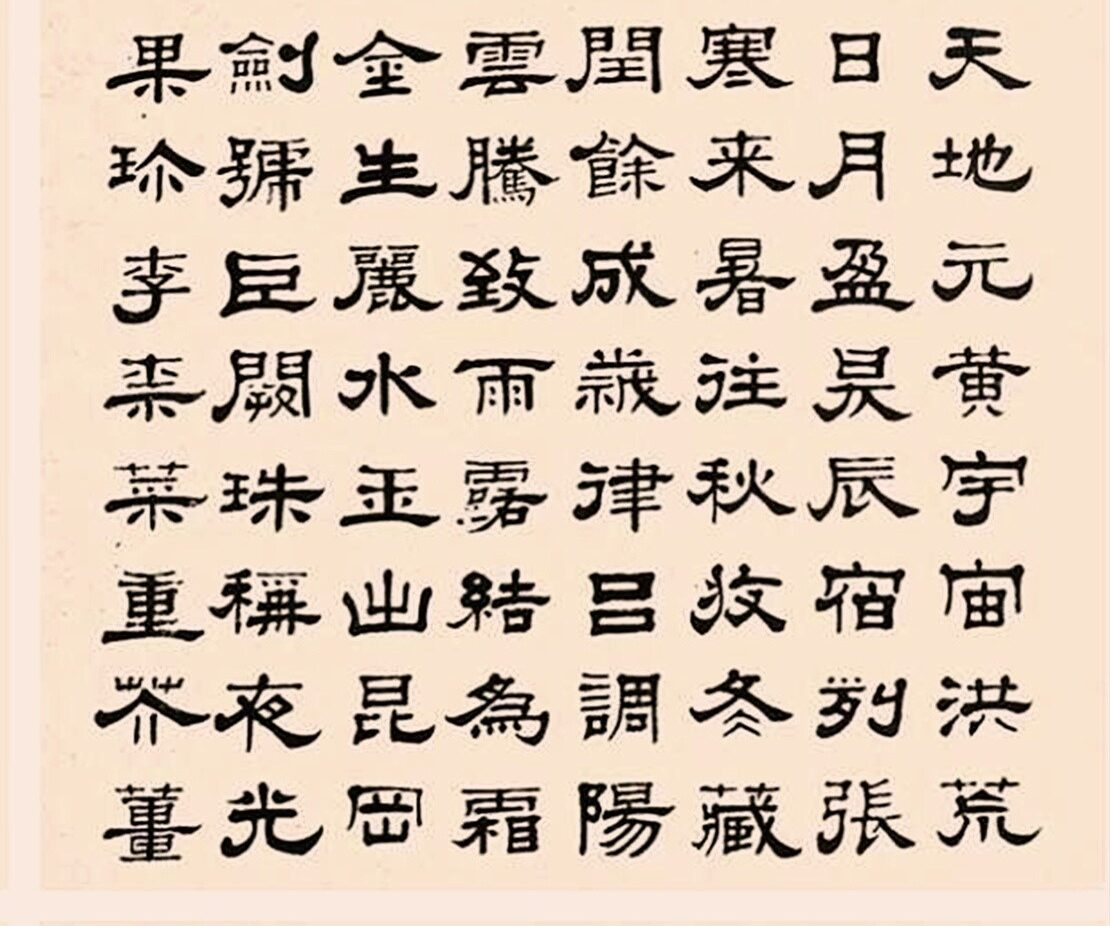 天地元黄宇宙洪荒
日月盈昃辰宿列張
寒来暑往秋收冬藏
閏餘成歲律呂調陽
雲騰致雨露結為霜
金生麗水玉出昆岡
劍號巨闕珠稱夜光
果珍李柰菜重芥薑